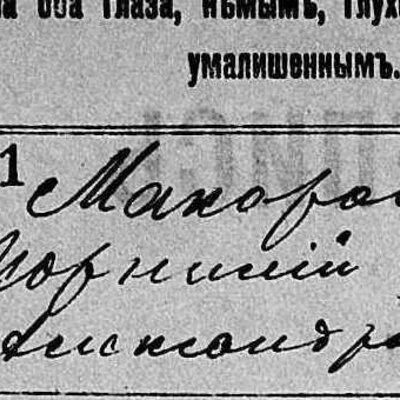 а оба глаза, нѣмымъ, глух
умалишеннымъ.
1 Макаро
Корнилій
Александр